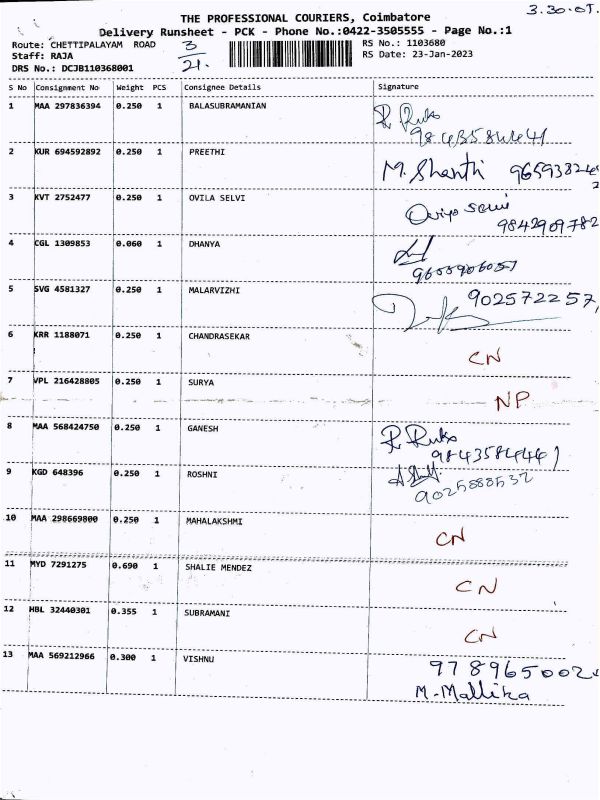 3.30.
THE PROFESSIONAL COURIERS, Coimbatore
Delivery Runsheet - PCK - Phone No.:0422-3505555 - Page No.:1
Route: CHETTIPALAYAM ROAD 3/21. RS No.: 1103680
Staff: RAJA RS Date: 23-Jan-2023
DRS No.: DCJB110368001
S No Consignment No Weight PCS Consignee Details Signature
1 MAA 297836394 0.250 1 BALASUBRAMANIAN
9843584441
2 KUR 694592892 0.250 1 PREETHI M. Shanthi
3 KVT 2752477 0.250 1 OVILA SELVI
9842909782
4 CGL 1309853 0.060 1 DHANYA
5 SVG 4581327 0.250 1 MALARVIZHI 902572257
6 KRR 1188071 0.250 1 CHANDRASEKAR CN
7 VPL 216428805 0.250 1 SURYA NP
8 MAA 568424750 0.250 1 GANESH
9 KGD 648396 0.250 1 ROSHNI
9025888532
10 MAA 298669800 0.250 1 MAHALAKSHMI CN
11 MYD 7291275 0.690 1 SHALIE MENDEZ CN
12 HBL 32440301 0.355 1 SUBRAMANI CN
13 MAA 569212966 0.300 1 VISHNU 978965002
M. Mallika